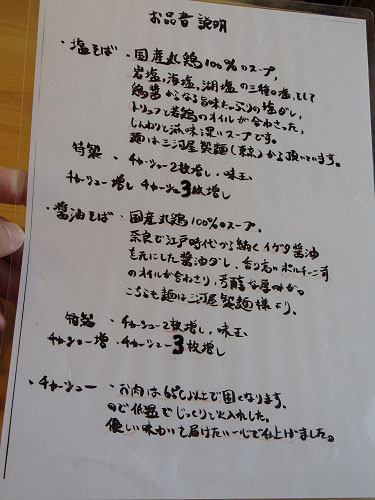 お品書 説明
・塩そば・国産丸鶏100%のスープ,
岩塩,海塩,湖塩の三種の塩,そして
鶏醤からなる旨味たっぷりの塩ダレ,
トリュフと若鶏のオイルが合わさった,
じんわりと滋味深いスープです。
麺は三河屋製麺(東京)から頂いています。
特製・チャーシュー2枚増し,味玉
チャーシュー増し チャーシュー3枚増し
・醤油そば・国産丸鶏100%のスープ,
奈良で江戸時代から続くイゲタ醤油
を元にした醤油ダレ,香り高いポルチーニ茸
のオイルが合わさり,芳醇な風味が。
こちらも麺は三河屋製麺様より。
特製・チャーシュー2枚増し,味玉
チャーシュー増・チャーシュー3枚増し
・チャーシュー・お肉は65℃以上で固くなります,
ので低温でじっくりと火入れした。
優しい味わいを届けたい一心で仕上げました。